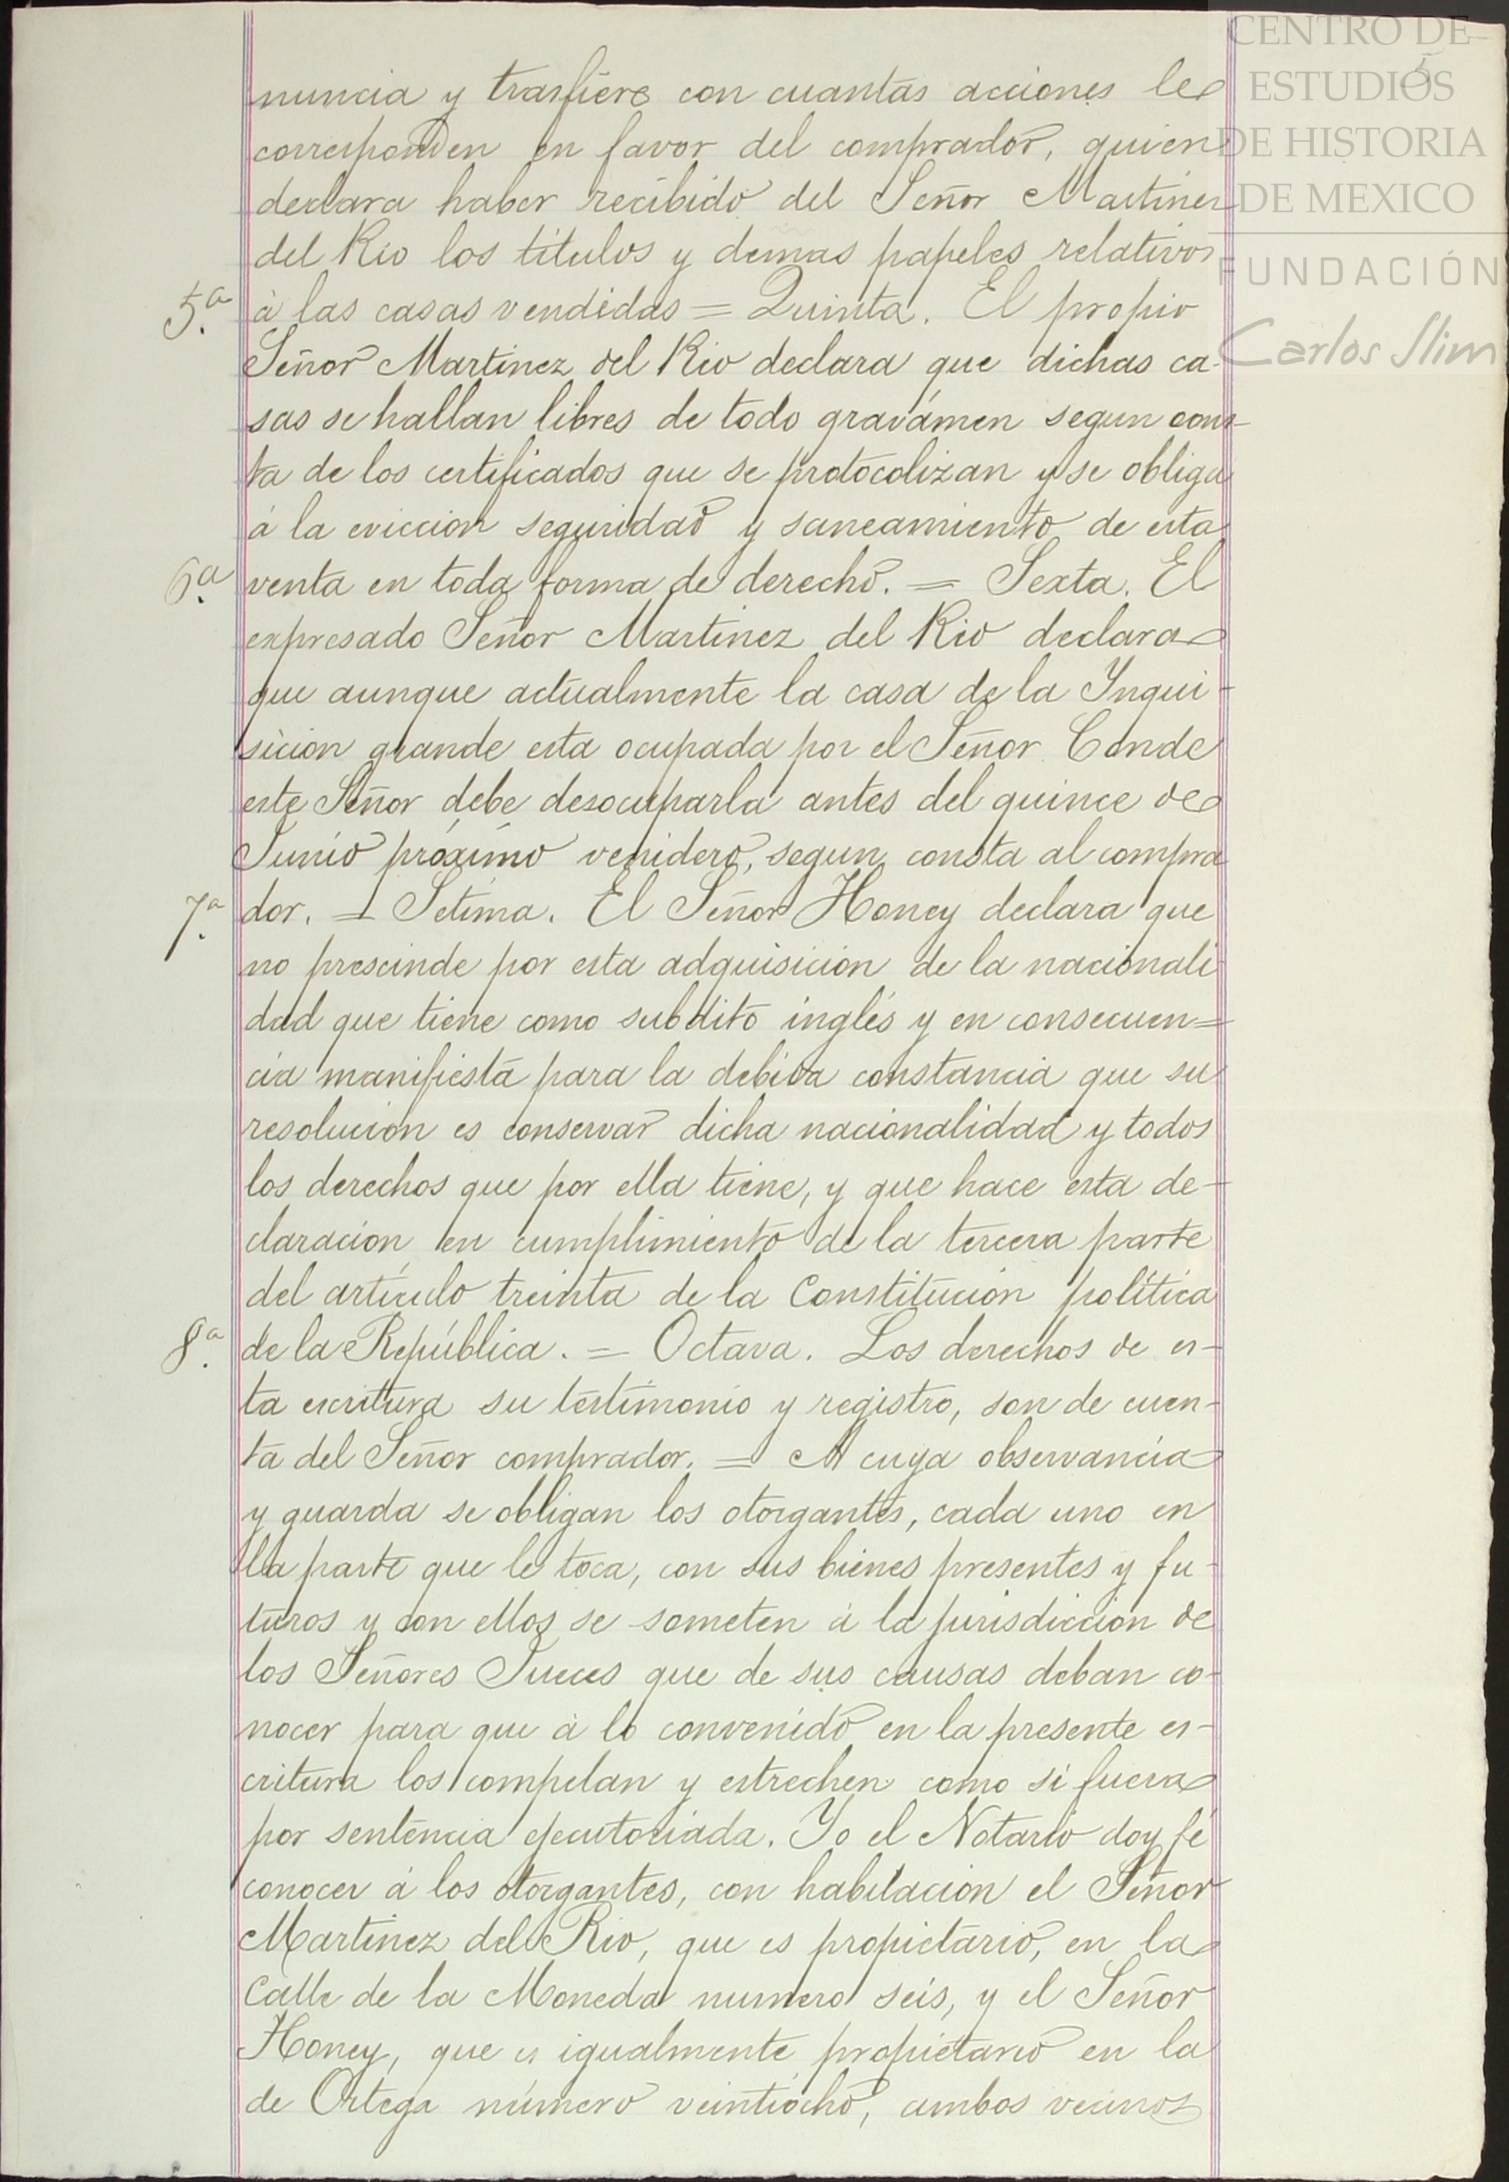 CENTRO DE
ESTUDIOS
DE HISTORIA
DE MEXICO
FUNDACIÓN
Carlos Slim
5
nuncia y trasfiere con cuantas acciones le
corresponden en favor del comprador, quien
declara haber recibido del Señor Martinez
del Rio los titulos y demas papeles relativos
5.ª à las casas vendidas = Quinta. El propio
Señor Martinez del Rio declara que dichas ca-
sas se hallan libres de todo gravámen segun cons-
ta de los certificados que se protocolizan y se obliga
á la eviccion seguridad y saneamiento de esta
6.ª venta en toda forma de derecho. = Sexta. El
expresado Señor Martinez del Rio declara
que aunque actualmente la casa de la Ynqui-
sicion grande esta ocupada por el Señor Conde
este Señor debe desocuparla antes del quince de
Junio próximo venidero, segun consta al compra
7.ª dor. = Setima. El Señor Honey declara que
no prescinde por esta adquisicion de la nacionali
dad que tiene como subdito inglés y en consecuen=
cia manifiesta para la debida constancia que su
resolucion es conservar dicha nacionalidad y todos
los derechos que por ella tiene, y que hace esta de-
claracion en cumplimiento de la tercera parte
del artículo treinta de la Constitucion política
8.ª de la República. = Octava. Los derechos de es-
ta escritura su testimonio y registro, son de cuen-
ta del Señor comprador. = A cuya observancia
y guarda se obligan los otorgantes, cada uno en
la parte que le toca, con sus bienes presentes y fu-
turos y con ellos se someten à la jurisdiccion de
los Señores Jueces que de sus causas deban co-
nocer para que à lo convenido en la presente es-
critura los compelan y estrechen como si fuera
por sentencia ejecutoriada. Yo el Notario doy fé
conocer á los otorgantes, con habitacion el Señor
Martinez del Rio, que es propietario, en la
Calle de la Moneda numero seis, y el Señor
Honey, que es igualmente propietario en la
de Ortega número veintiocho, ambos vecinos